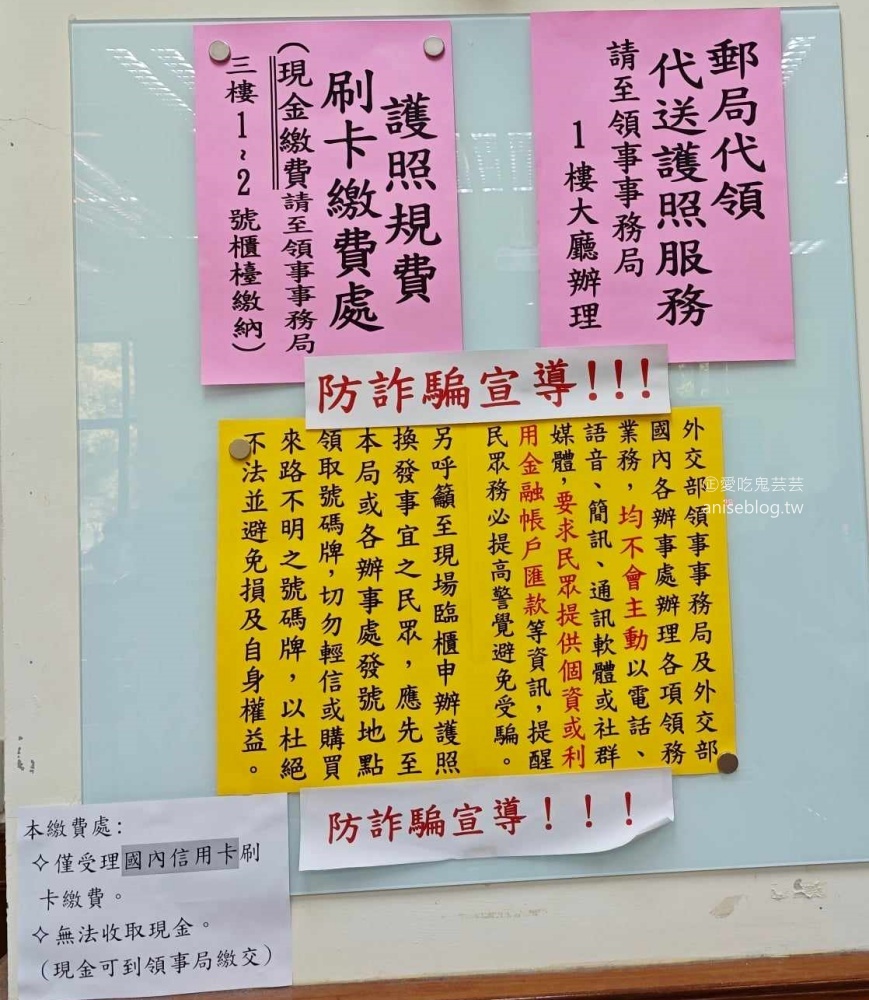 郵局代領
代送護照服務
請至領事事務局
1樓大廳辦理
護照規費
刷卡繳費處
(現金繳費請至領事事務局
三樓1~2號櫃檯繳納)
防詐騙宣導!!!
外交部領事事務局及外交部
國內各辦事處辦理各項領務
業務,均不會主動以電話、
語音、簡訊、通訊軟體或社群
媒體,要求民眾提供個資或利
用金融帳戶匯款等資訊,提醒
民眾務必提高警覺避免受騙。
另呼籲至現場臨櫃申辦護照
換發事宜之民眾,應先至
本局或各辦事處發號地點
領取號碼牌,切勿輕信或購買
來路不明之號碼牌,以杜絕
不法並避免損及自身權益。
防詐騙宣導!!!
本繳費處:
✧僅受理國內信用卡刷
卡繳費。
✧無法收取現金。
(現金可到領事局繳交)
愛吃鬼芸芸
aniseblog.tw